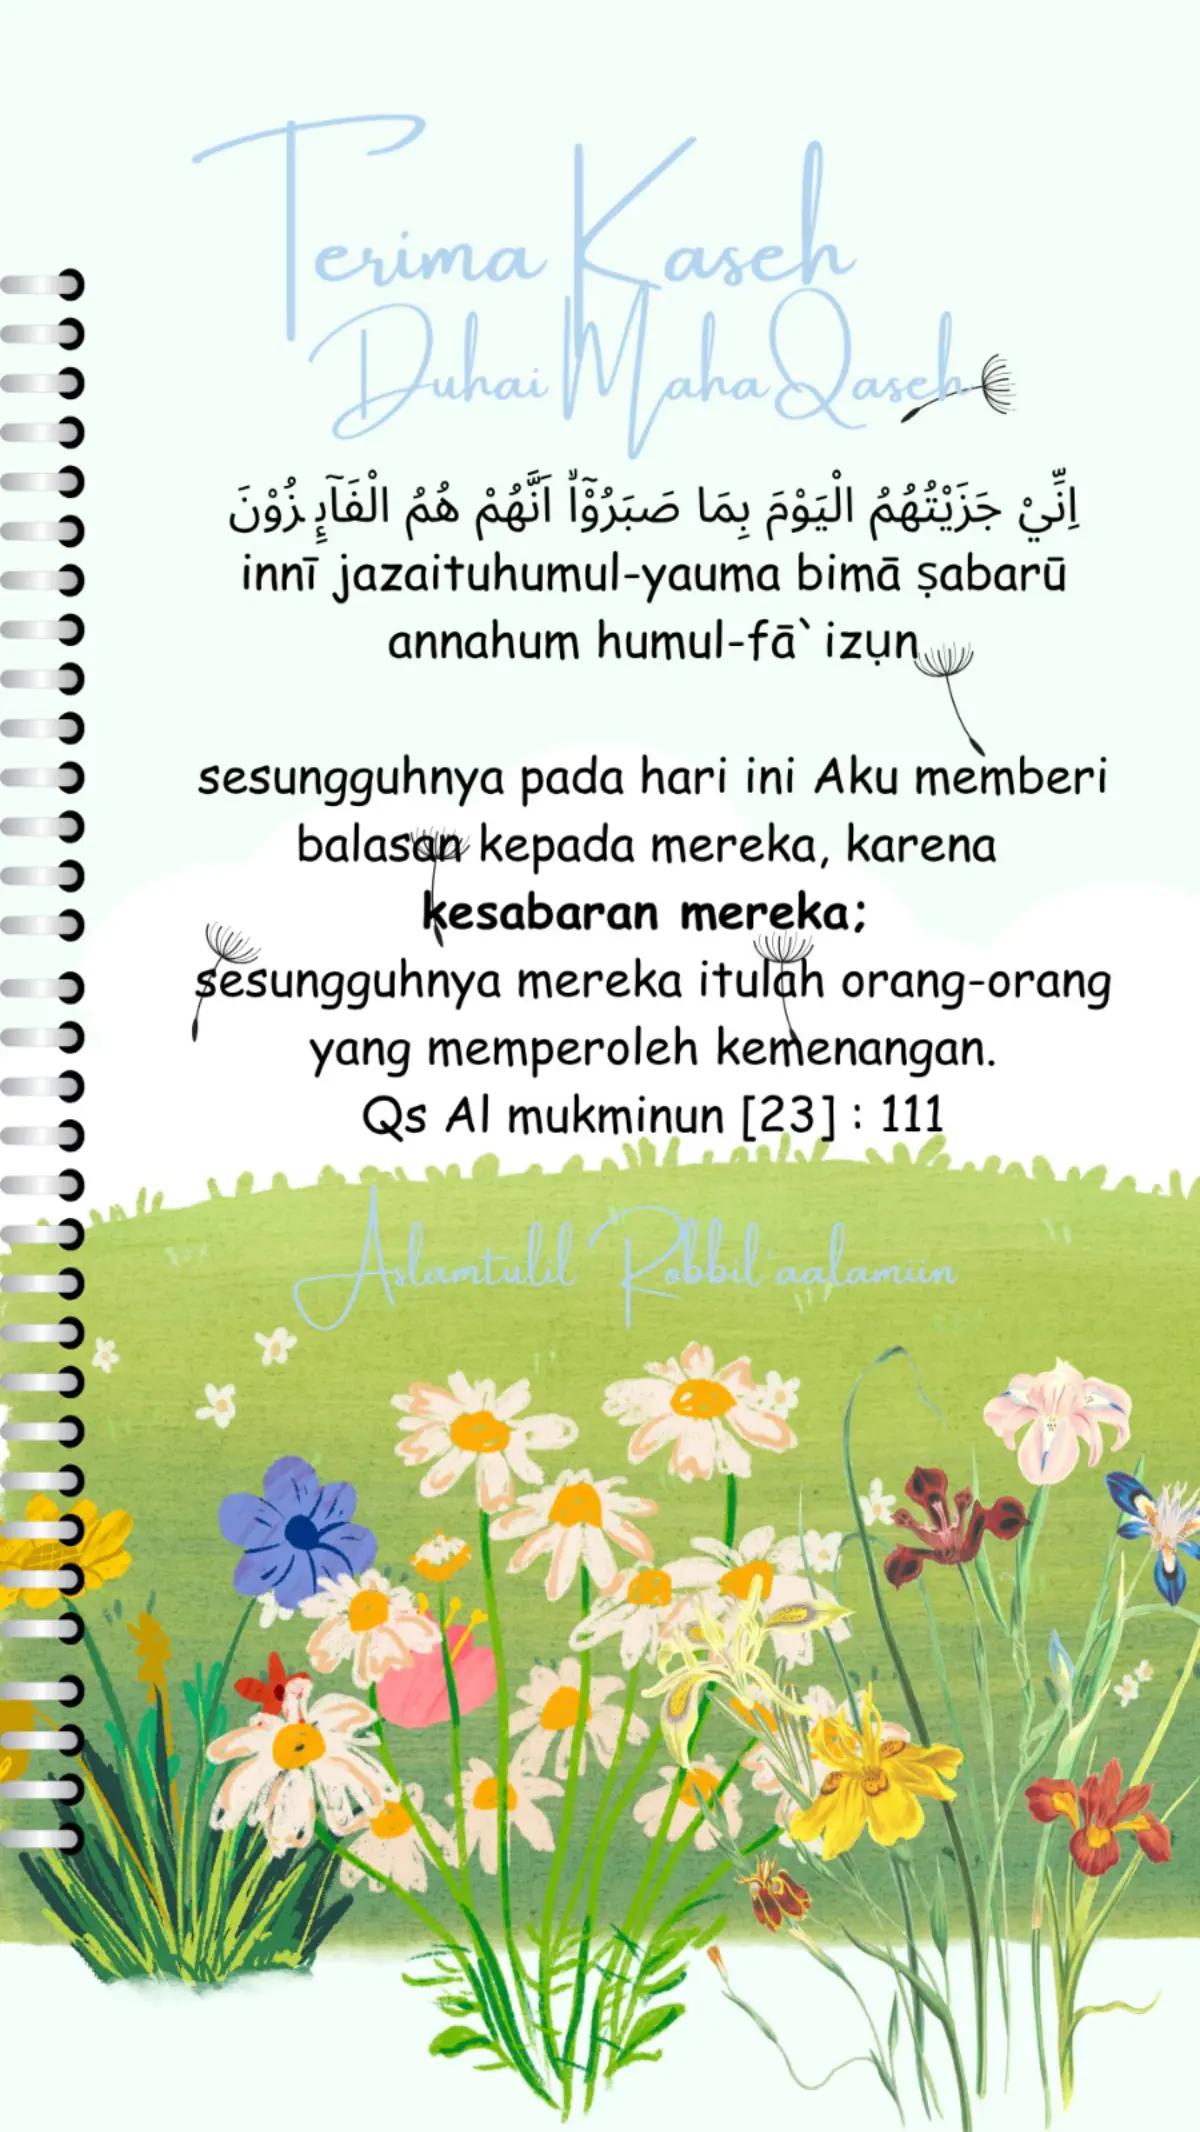 Terima Kaseh
Duhai Maha Qaseh
اِنِّيْ جَزَيْتُهُمُ الْيَوْمَ بِمَا صَبَرُوْٓاۙ اَنَّهُمْ هُمُ الْفَاۤىِٕزُوْنَ
innī jazaituhumul-yauma bimā ṣabarū
annahum humul-fā`izụn
sesungguhnya pada hari ini Aku memberi
balasan kepada mereka, karena
kesabaran mereka;
sesungguhnya mereka itulah orang-orang
yang memperoleh kemenangan.
Qs Al mukminun [23] : 111
Aslamtulil Robbil'aalamiin